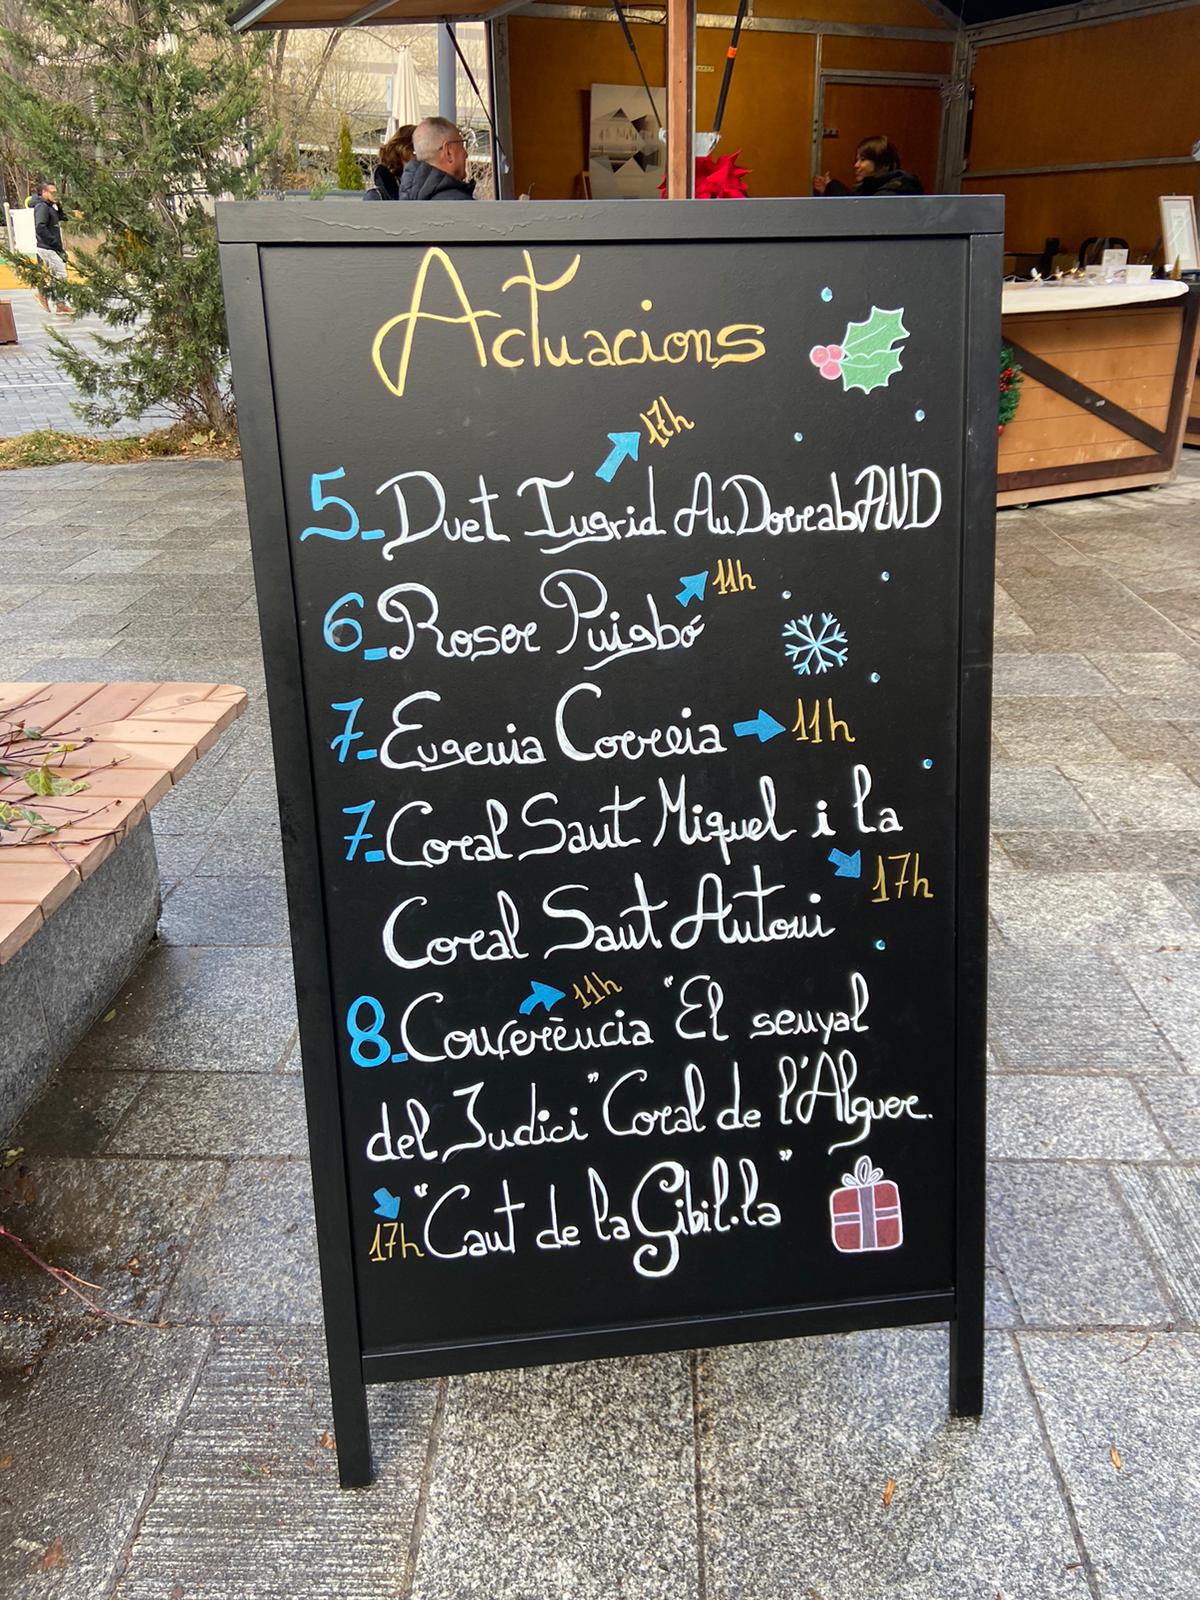 Actuacions
17h
5_Duet Ingrid AuDorrabAND
11h
6_Roser Puigbó
7_Eugenia Correia 11h
7_Coral Sant Miquel i la
17h
Coral Sant Antoni
11h
8_Conferència "El senyal
del Judici" Coral de l'Alguer.
17h "Cant de la Gibil·la"